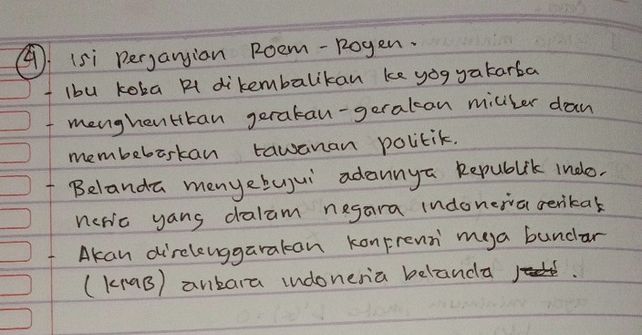 ④. Isi perjanjian Roem - Royen.
- Ibu kota RI dikembalikan ke yogyakarta
- menghentikan gerakan-gerakan militer dan
membebaskan tawanan politik.
- Belanda menyetujui adannya Republik Indo-
nesia yang dalam negara indonesia serikat
- Akan diselenggarakan konprensi meja bundar
(KMB) antara indonesia belanda .